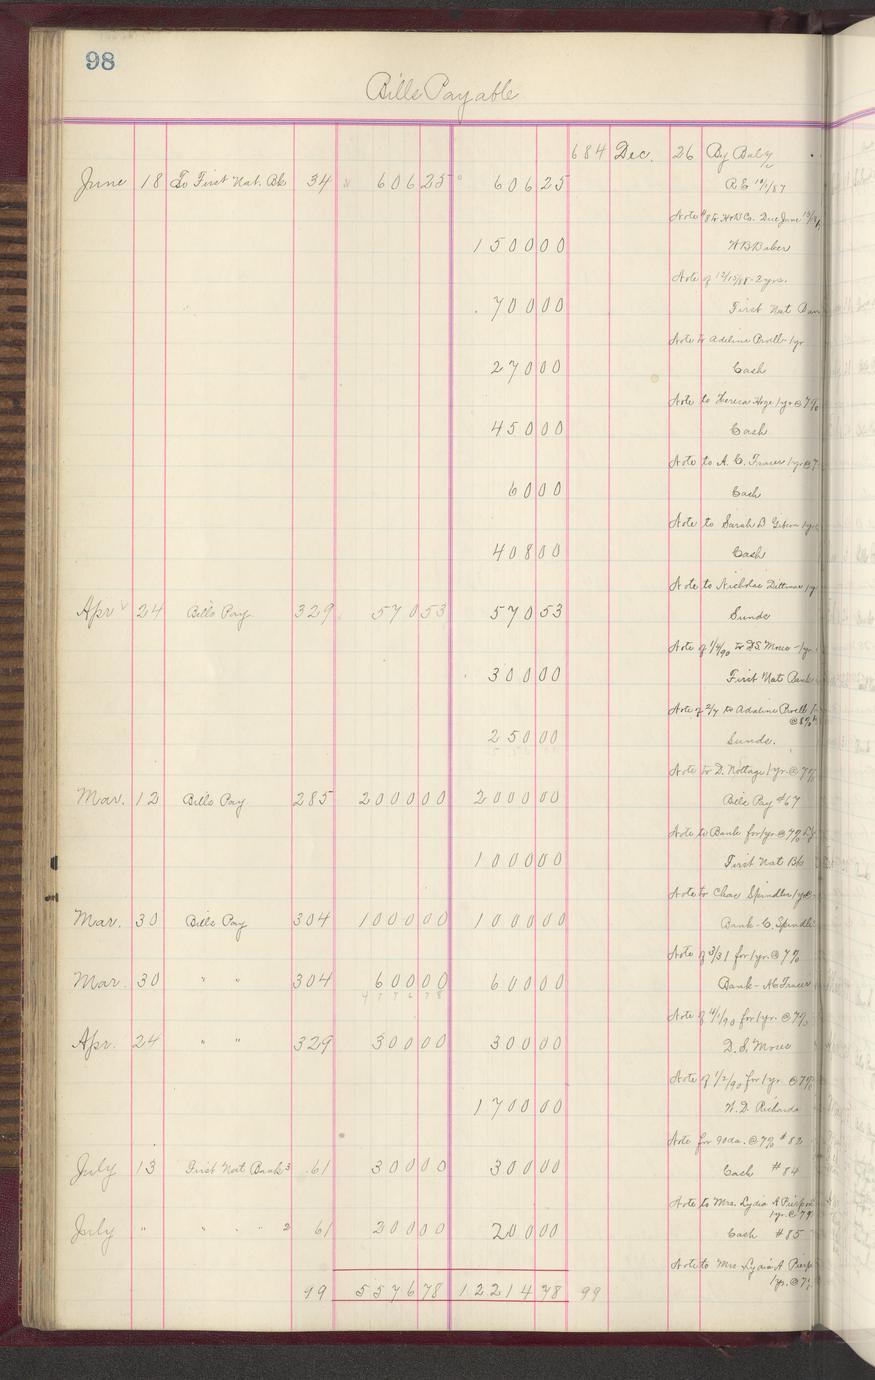 98
Bills Payable
684 Dec. 26 By Baly
June 18 To First Nat. Bk 34 606 25 606 25 R.E. /87
Note #86 Due June
1500 00 W B Baker
Note of 12/15/88 - 2 yrs.
700 00 First Nat Ban
Note to Adeline 1 yr
270 00 Cash
Note to Theresa Hoge 1 yr @ 7%
450 00 Cash
Note to A. C. Tracer 1 yr @ 7
60 00 Cash
Note to Sarah D 1 yr
408 00 Cash
Note to Nicholas Dittmar 1 y
Apr 24 Bills Pay 329 570 53 570 53 Sunds
Note of 1/4/90 to D S Mores - 1 yr
300 00 First Nat Bank
Note of 2/7 to Adaline
@ 8%
250 00 Sunds.
Note to D. Nottage 1 yr. @ 7%
Mar. 12 Bills Pay 285 2000 00 2000 00 Bills Pay #67
Note to Bank for 1 yr. @ 7%
1000 00 First Nat Bk
Note to Chas Spindler 1 yr @
Mar. 30 Bills Pay 304 1000 00 1000 00 Bank - C. Spindle
Note of 3/31 for 1 yr. @ 7%
Mar 30 " " 304 600 00 600 00 Bank - A C Tracer
4776 78
Note of 4/1/90 for 1 yr. @ 7%
Apr. 24 " " 329 300 00 300 00 D. S. Mores
Note of 1/2/90 for 1 yr. @ 7%
1700 00 W. D. Richards
Note for 90 da. @ 7% #82
July 13 First Nat Bank 3 61 300 00 300 00 Cash #84
Note to Mrs. Lydia A Pierpon
1 yr. @ 7%
July " " " 2 61 200 00 200 00 Cash #85
Note to Mrs Lydia A Pierp
1 yr. @ 7%
99 5576 78 12214 78 99